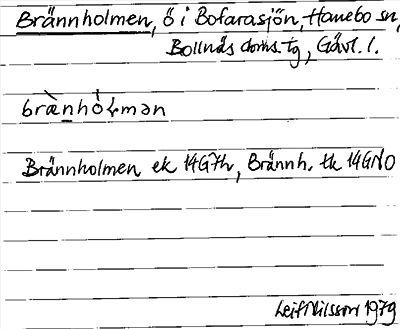 Brännholmen, ö i Bofarasjön, Hanebo sn,
Bollnäs doms. tg, Gävl. l.
brænhòɫmən
Brännholmen ek 14G7h, Brännh. tk 14GNO
Leif Nilsson 1979